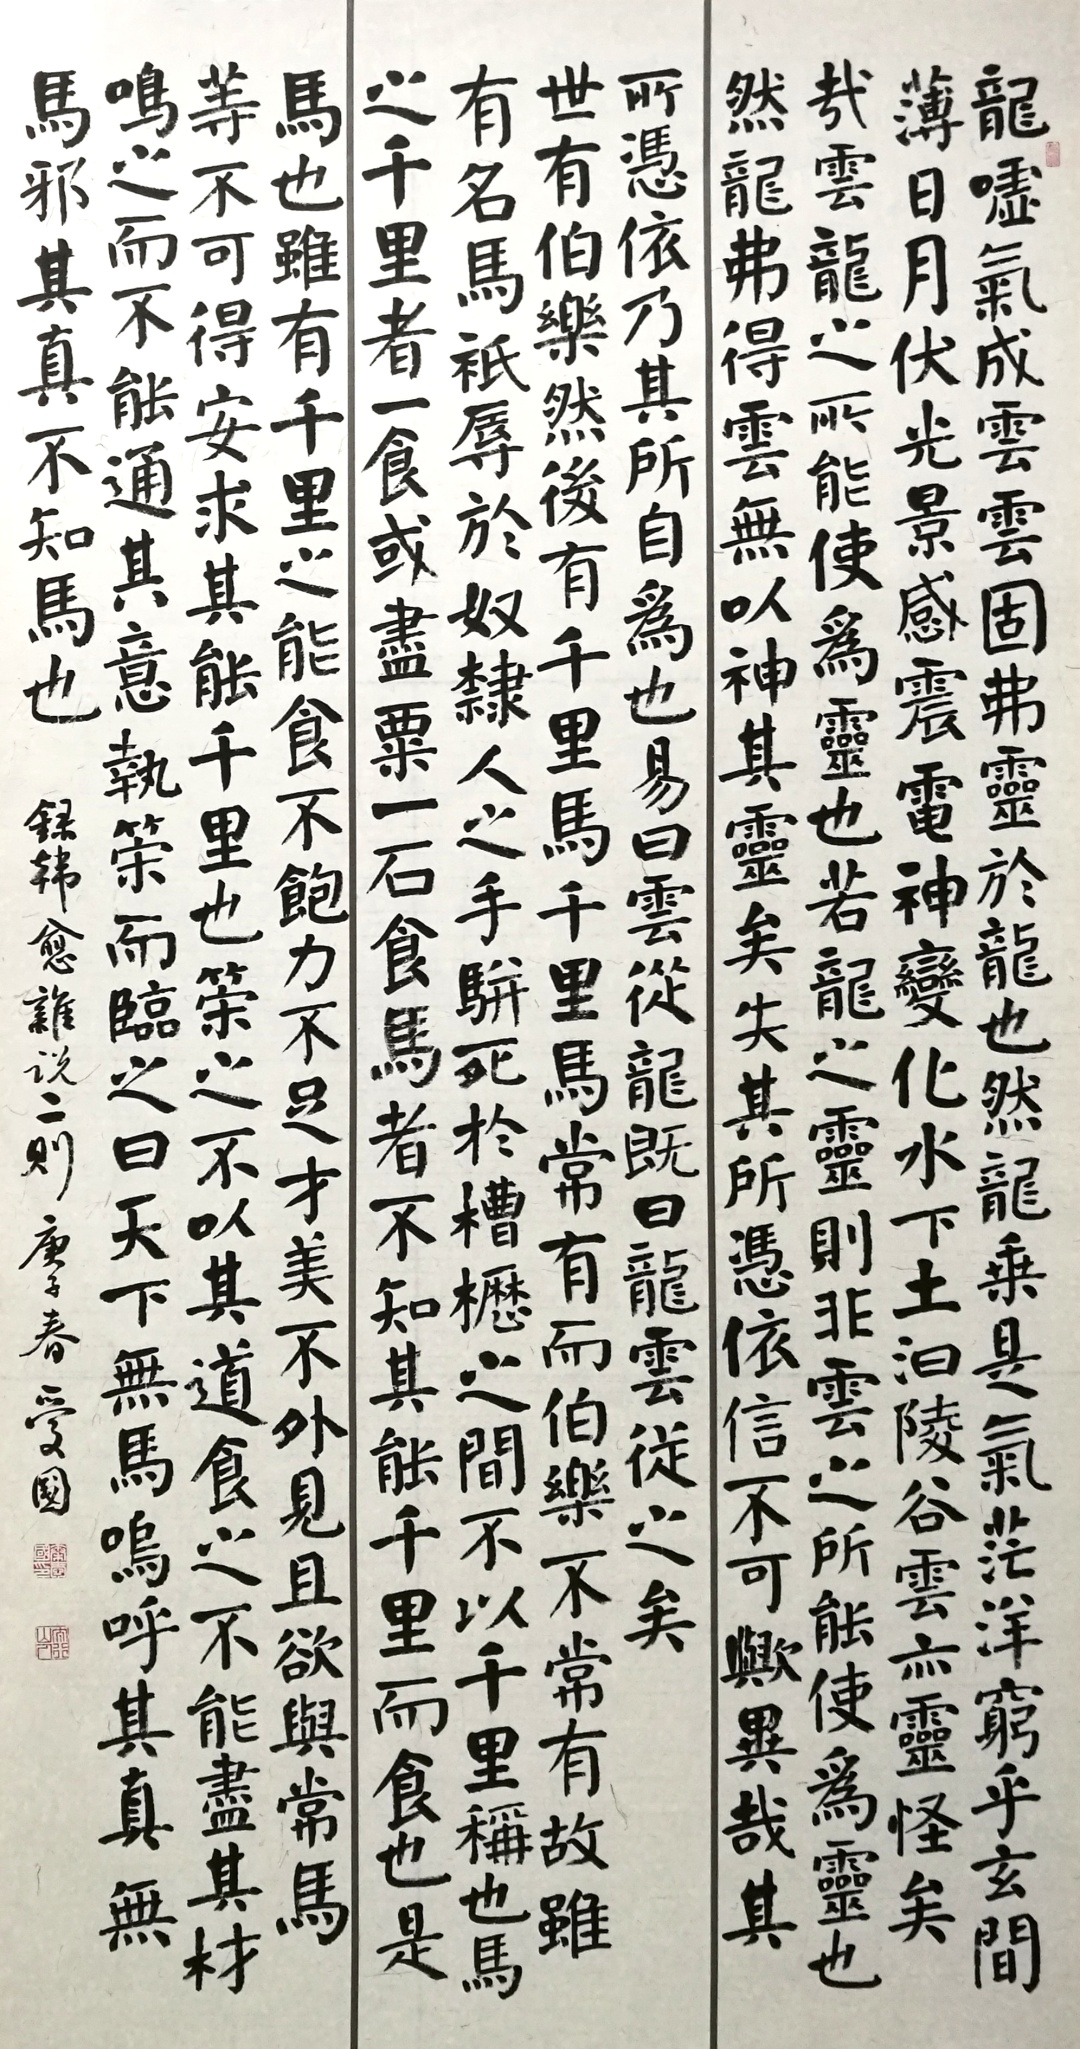 龍噓氣成雲雲固弗靈於龍也然龍乗是氣茫洋窮乎玄間
薄日月伏光景感震電神變化水下土汩陵谷雲亦靈怪矣
哉雲龍之所能使爲靈也若龍之靈則非雲之所能使爲靈也
然龍弗得雲無以神其靈矣失其所憑依信不可歟異哉其
所憑依乃其所自爲也易曰雲從龍既曰龍雲從之矣
世有伯樂然後有千里馬千里馬常有而伯樂不常有故雖
有名馬祇辱於奴隸人之手駢死於槽櫪之間不以千里稱也馬
之千里者一食或盡粟一石食馬者不知其能千里而食也是
馬也雖有千里之能食不飽力不足才美不外見且欲與常馬
等不可得安求其能千里也策之不以其道食之不能盡其材
鳴之而不能通其意執策而臨之曰天下無馬嗚呼其真無
馬邪其真不知馬也 録韓愈雜说二則 庚子春 愛國